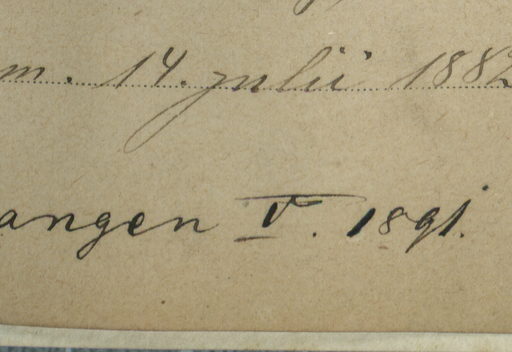 m. 14. julii 1882
angen V. 1891.